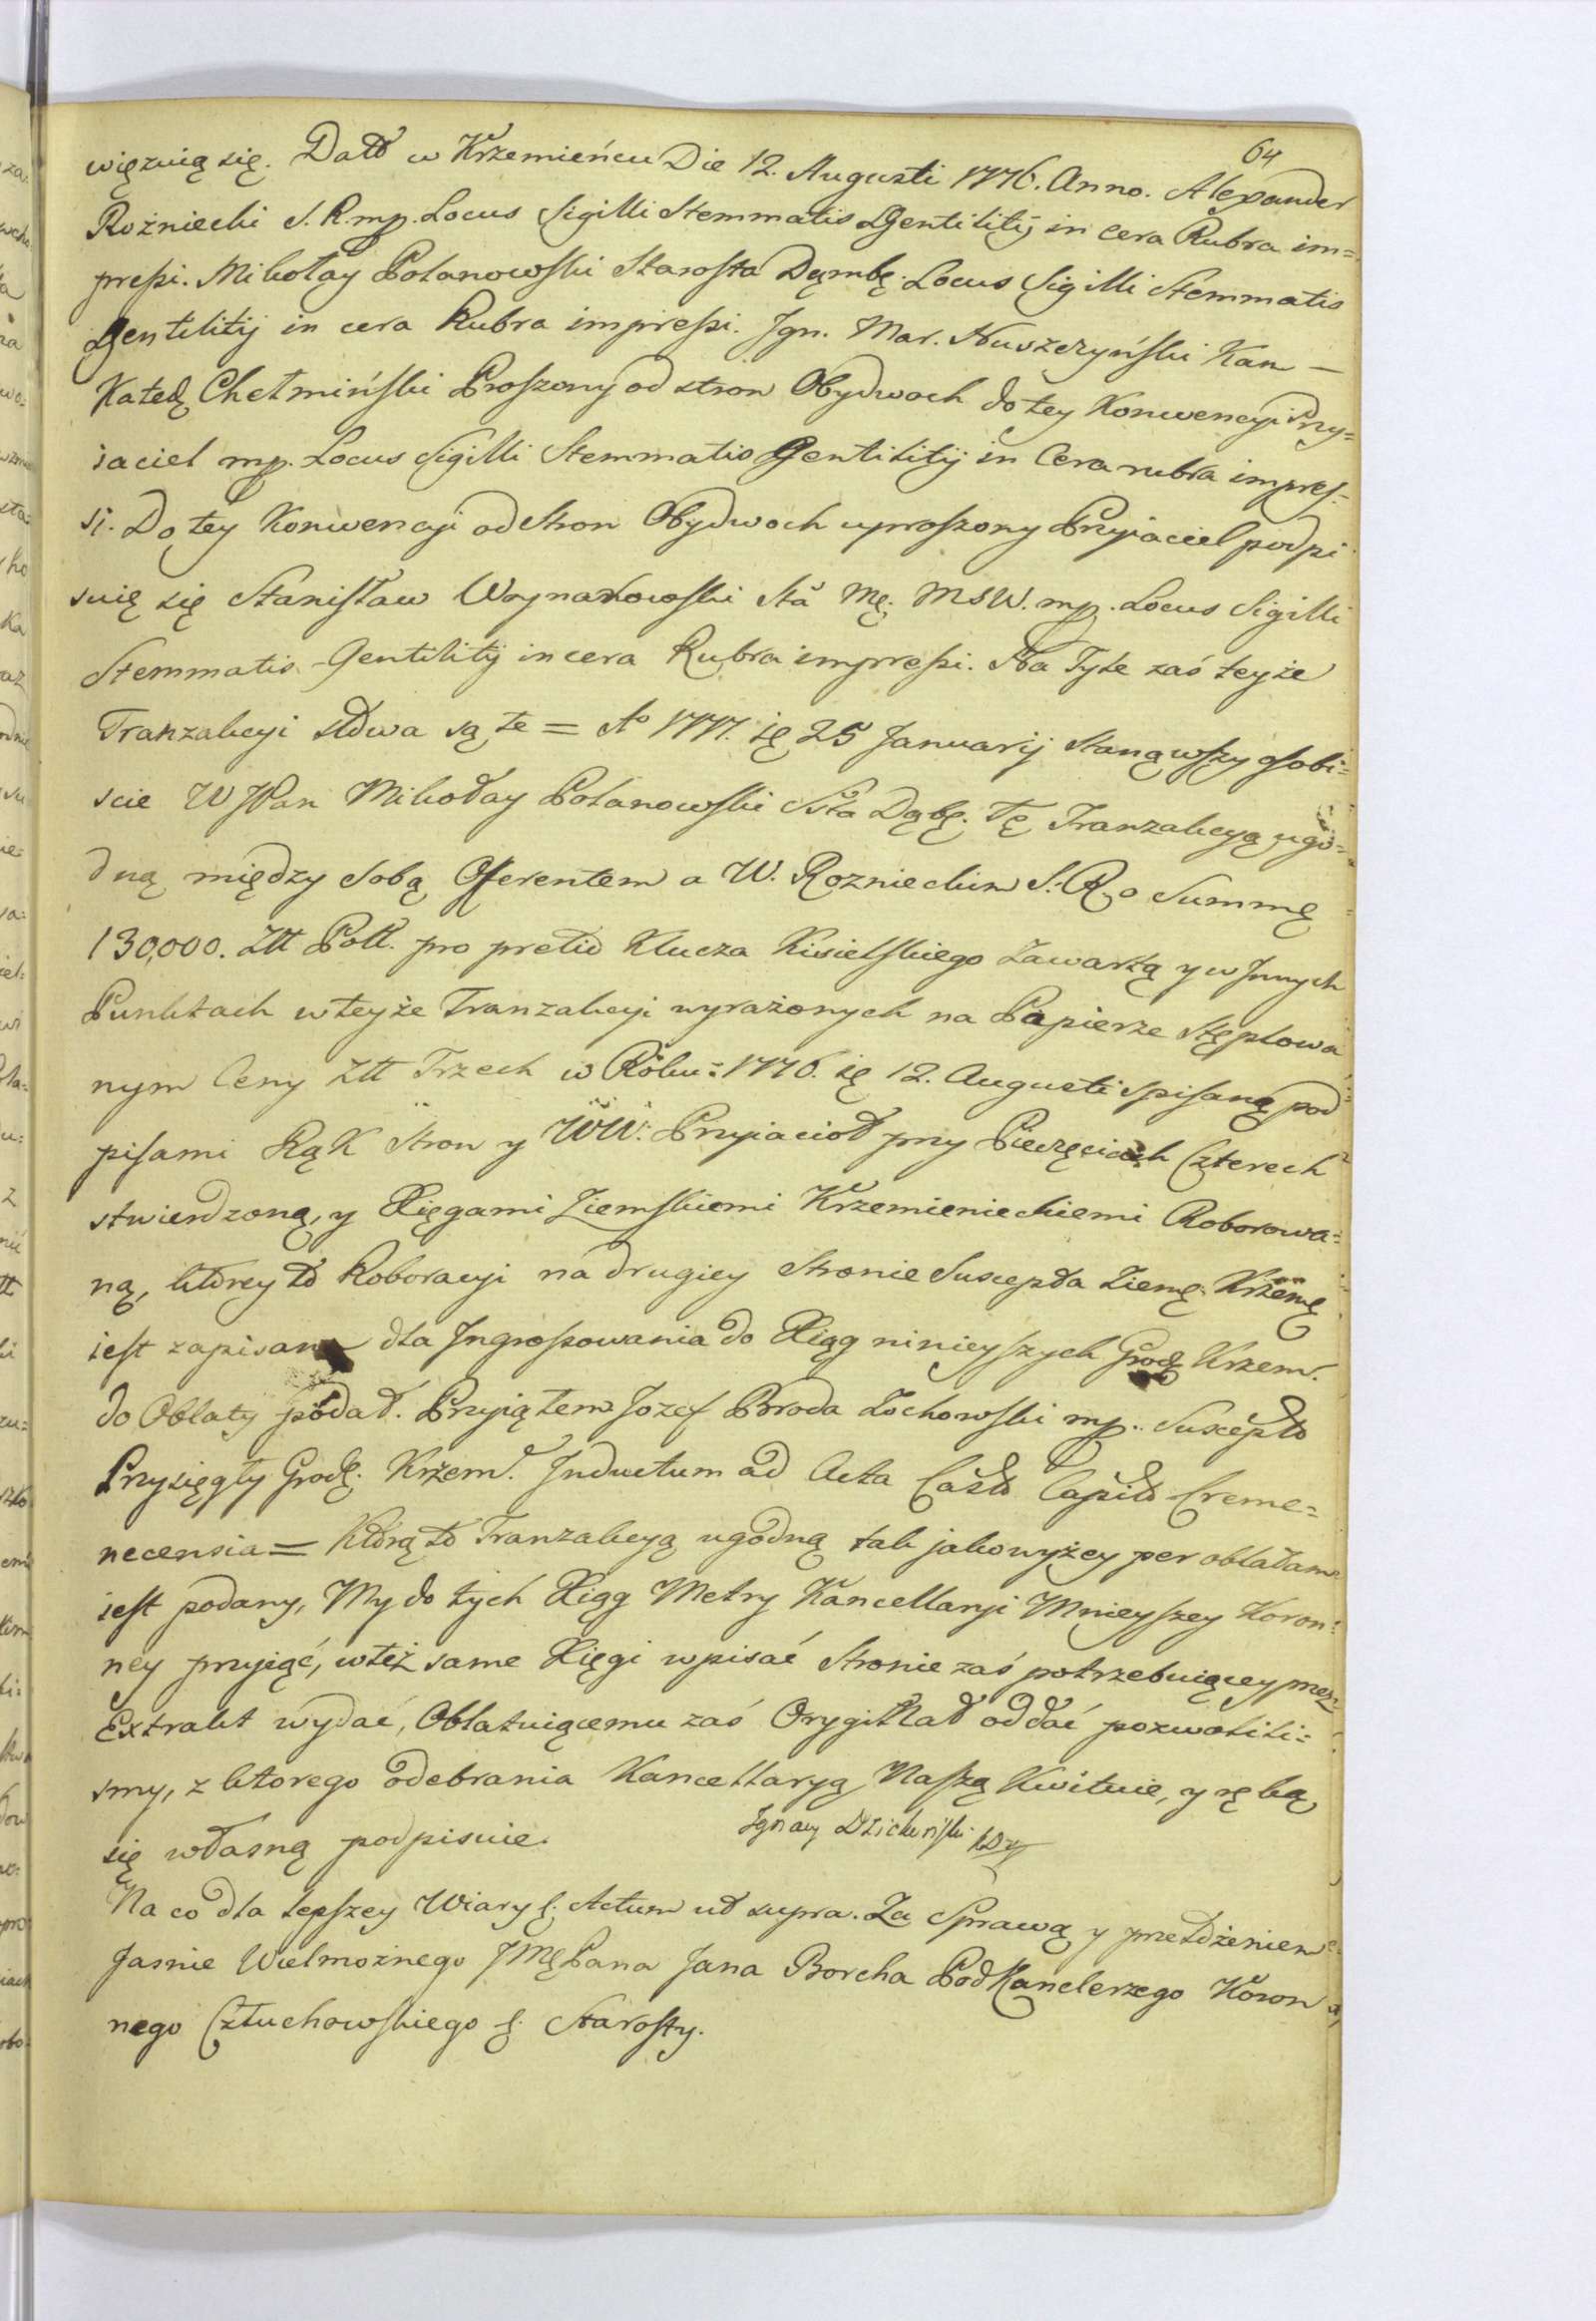 64
więzuią się. Datt w Krzemieńcu Die 12. Augusti 1776. Anno. Alexander
Rożniecki S. R. mp. Locus Sigilli Stemmatis Gentilitij in cera Rubra im=
pressi. Mikołay Polanowski Starosta Dęmbę. Locus Sigilli Stemmatis
Gentilitij in cera Rubra impressi. Ign. Mar. Nuszczyński Kan —
Kated Chełmiński Proszony od stron Obydwoch do tey Konwencyi Przy=
iaciel mp. Locus Sigilli Stemmatis Gentilitij in Cera rubra impres=
si. Do tey Konwencyi od Stron Obydwoch uproszony Przyiaciel podpi
suię się Stanisław Woynarowski Sta Mę. MSW. mp. Locus Sigilli
Stemmatis Gentilitij in cera Rubra impressi. Na Tyle zaś teyże
Tranzakcyi słowa są te = Ao 1777. ię 25 Januarij Stanąwszy osobi=
scie WJPan Mikołay Polanowski Stta Dąbę. Tę Tranzakcyą ugo=
dną między sobą Offerentem a W. Roznieckim S. R. o Summę
130,000. Złł Poll. pro pretio Klucza Kisielskiego Zawartą y w Innych
Punktach w teyże Tranzakcyi wyrażonych na Papierze Stęplowa
nym Ceny Złł Trzech w Roku: 1776. ię 12. Augusti spisaną pod=
pisami Rąk Stron y WW: Przyiacioł przy Pieczęciach Czterech
stwierdzoną, y Xięgami Ziemskiemi Krzemienieckiemi Roborowa=
ną, ktorey to Roboracyi na drugiey Stronie Suscepta Ziemę. Krzemę
iest zapisana dla Ingrossowania do Xiąg ninieyszych Grodz Krzem.
do Oblaty podał. Przyiąłem Jozef Broda Zochowski mp. Suscept
Przysięgły Grodz. Krzem. Inductum ad Acta Castr Capit Creme=
necensia = Ktorą to Tranzakcyą ugodną tak jako wyżey per oblatam
iest podany, My do tych Xiąg Metry Kancellaryi Mnieyszey Koron=
ney przyięć, w też same Xięgi wpisać Stronie zaś potrzebuiącey przez
Extrakt wydać, Oblatuiącemu zaś Orygitlał oddać pozwolili=
smy, z ktorego odebrania Kancellaryą Naszą Kwituie, y ręką
się własną podpisuie. Ignacy Dzickuński
Na co dla lepszey Wiary &. Actum ut supra. Za Sprawą y przełożeniem
Jasnie Wielmożnego JMę Pana Jana Borcha PodKanclerzego Koron
nego Człuchowskiego &. Starosty.